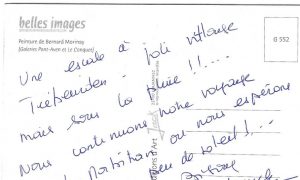 belles images
Peinture de Bernard Morinay
(Galeries Pont-Aven et Le Conquet)
G 552
Une escale à joli village
Trébeurden
mais sous la pluie !!....
Nous continuons notre voyage
où nous espérons
peu de soleil !....
d'Art